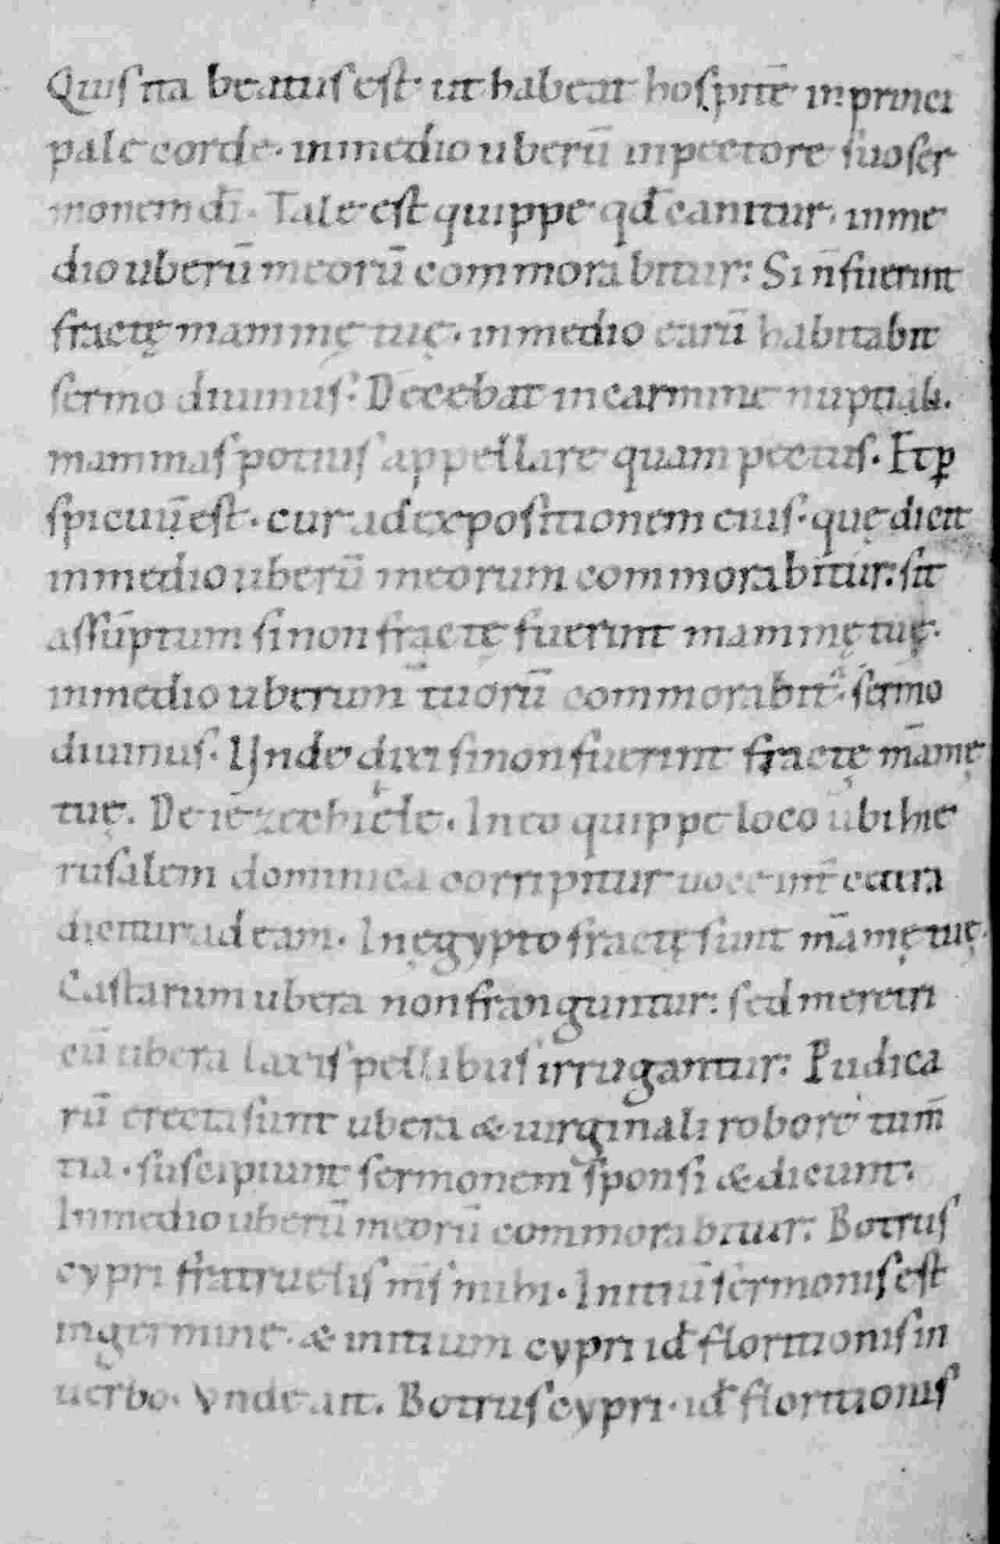 Quis ita beatus est· ut habeat hospitē in princi
pale corde· in medio uberū in pectore suo ser
monem dī· Tale est quippe qđ canitur· in me
dio uberū meorū commorabitur: Si ñ fuerint
fractę mammę tuę· in medio earū habitabit
sermo diuinus· Decebat in carmine nuptiali·
mammas potius appellare quam pectus· Et ꝑ
spicuū est· cur ad expositionem eius· quę dicit
in medio uberū meorum commorabitur: sit
assūptum si non fractę fuerint mammę tuę·
in medio uberum tuorū commorabit᷑ sermo
diuinus· Unde dixi si non fuerint fractę māmę
tuę· De iezechiele· In eo quippe loco ubi hie
rusalem dominica corripitur uoce int̄ cetera
dicitur ad eam· In ęgypto fractę sunt māmę tuę·
Castarum ubera non franguntur: sed meretri
cū ubera laxis pellibus irrugantur: Pudica
rū erecta sunt ubera & uirginali robore tum̄
tia· suscipiunt sermonem sponsi & dicunt·
In medio uberū meorū commorabitur: Botrus
cypri fratruelis mīs mihi· Initiū sermonis est
in germine· & initium cypri id̄ floritionis in
uerbo· Vnde ait· Botrus cypri· id̄ floritionis